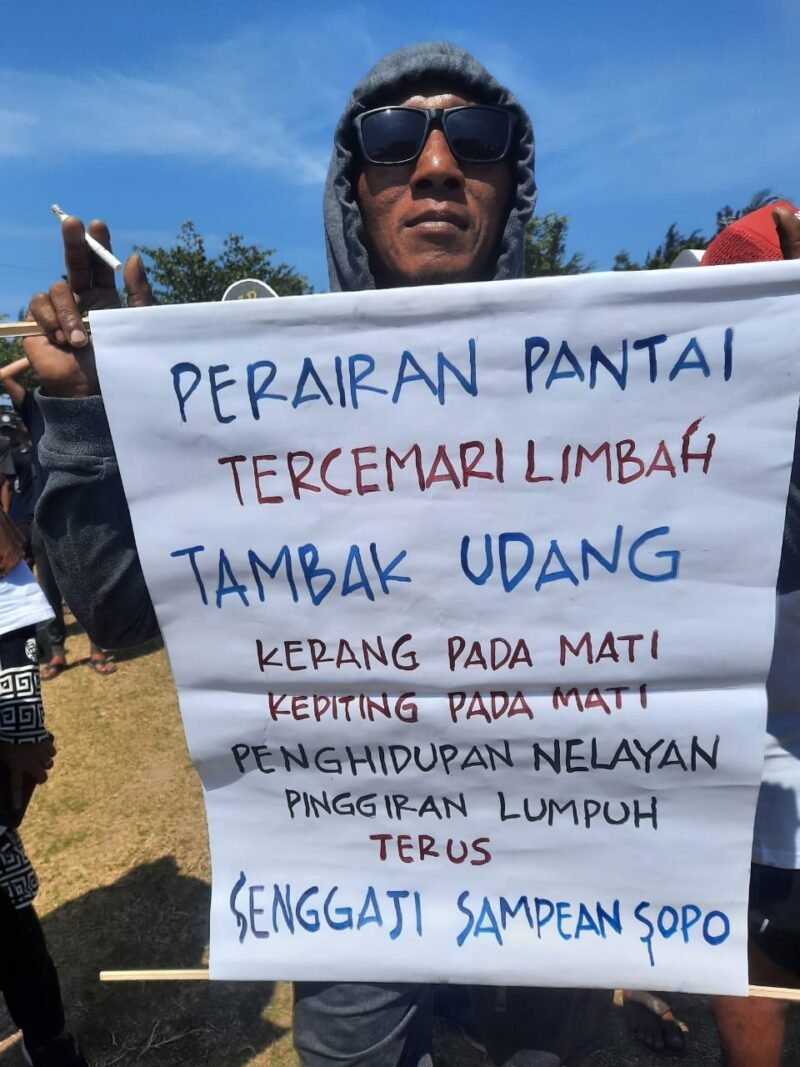 PERAIRAN PANTAI
TERCEMARI LIMBAH
TAMBAK UDANG
KERANG PADA MATI
KEPITING PADA MATI
PENGHIDUPAN NELAYAN
PINGGIRAN LUMPUH
TERUS
SENGGAJI SAMPEAN SOPO